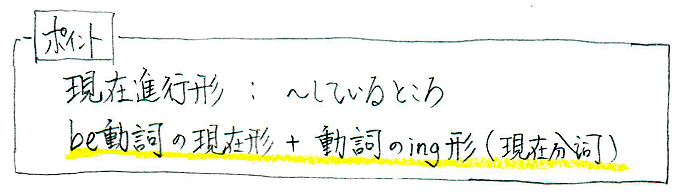 ポイント
現在進行形 : ～しているところ
be動詞の現在形 + 動詞のing形 (現在分詞)